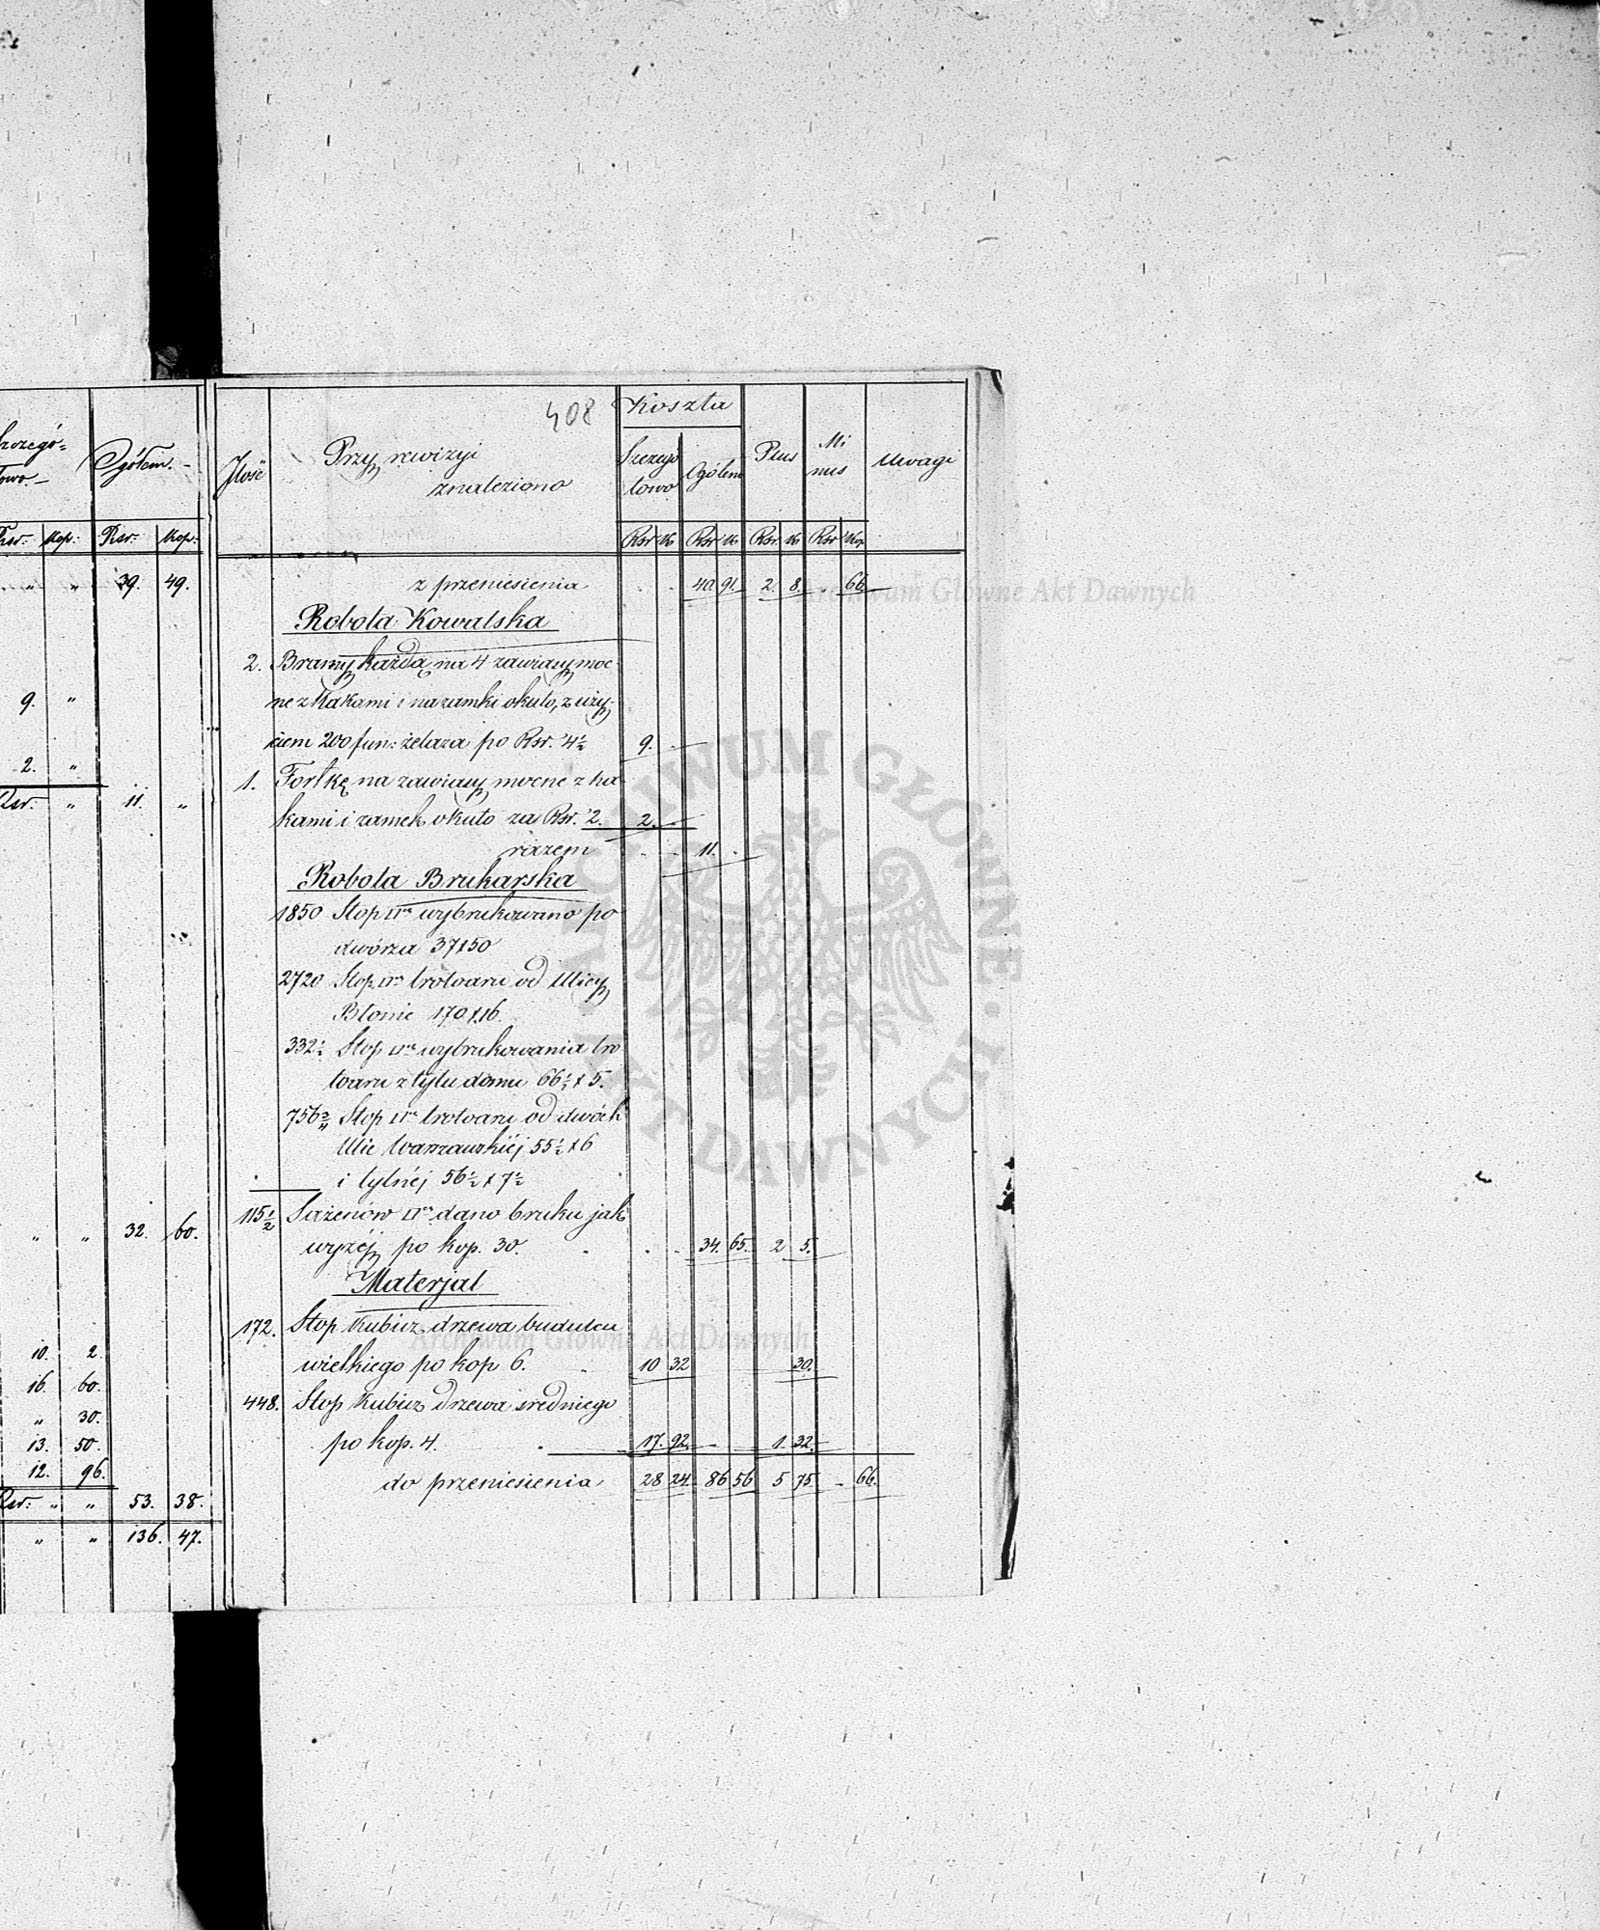 Ogółem.
Rsr. Kop. Rsr. Kop.
" " 39. 49.
9. "
2. "
Rsr. " 11. "
" " 32. 60.
10. 2
16. 60.
" 30.
13. 50.
12. 96.
Rsr. " " 53. 38.
" " 136. 47.
408
Ilość
Przy rewizyi
znaleziono
Koszta
Szczegó
łowo
Ogólem
Plus
Mi
nus
Uwagi
Rsr K Rsr K Rsr K Rsr Kop
z przeniesienia 40. 91. 2. 8. 66
Robota Kowalska
2. Bramy każdą na 4 zawiasy moc
ne z hakami i na zamki okuto, z uży-
ciem 200 fun: żelaza po Rsr. 4½ 9.
1. Fortkę na zawiasy mocne z ha-
kami i zamek okuto za Rsr. 2. 2.
razem 11.
Robota Brukarska
1850 Stop □ wybrukowano po
dwórza 37x50
2720 Stop □ trotoaru od Ulicy
Błonie 170x16.
332½ Stop □ wybrukowania tro
toaru z tyłu domu 66½ x 5.
756¾ Stop □ trotoaru od dwóch
Ulic Warszawskiéj 55½ x 6
i tylnéj 56½ x 7½
115½ Sażenów □ dano bruku jak
wyzéj po kop. 30. 34. 65. 2 5.
Materjal
172. Stop Kubicz. drzewa budulcu
wielkiego po kop 6. 10 32 30.
448. Stop Kubicz drzewa średniego
po kop. 4. 17. 92. 1. 32.
do przeniesienia 28 24. 86 56 5 75. 66.
Archiwum Główne Akt Dawnych
ARCHIWUM GŁÓWNE AKT DAWNYCH
Archiwum Główne Akt Dawnych